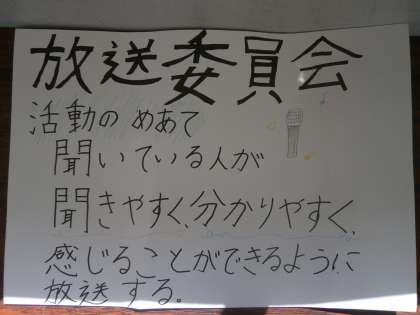 放送委員会
活動の めあて
聞いている人が
聞きやすく、分かりやすく、
感じることができるように
放送する。